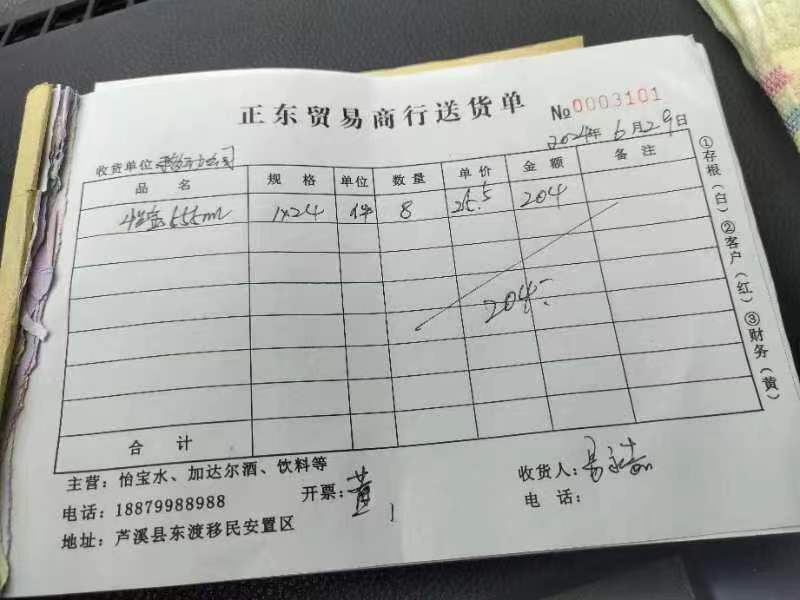 正东贸易商行送货单
№ 0003101
2024年 6月29日
收货单位
品 名 规 格 单位 数量 单价 金额 备注
怡宝555ml 1×24 件 8 25.5 204
204.
合 计
主营：怡宝水、加达尔酒、饮料等
电话：18879988988 开票：黄
地址：芦溪县东渡移民安置区
收货人：
电 话：
①存根（白）②客户（红）③财务（黄）